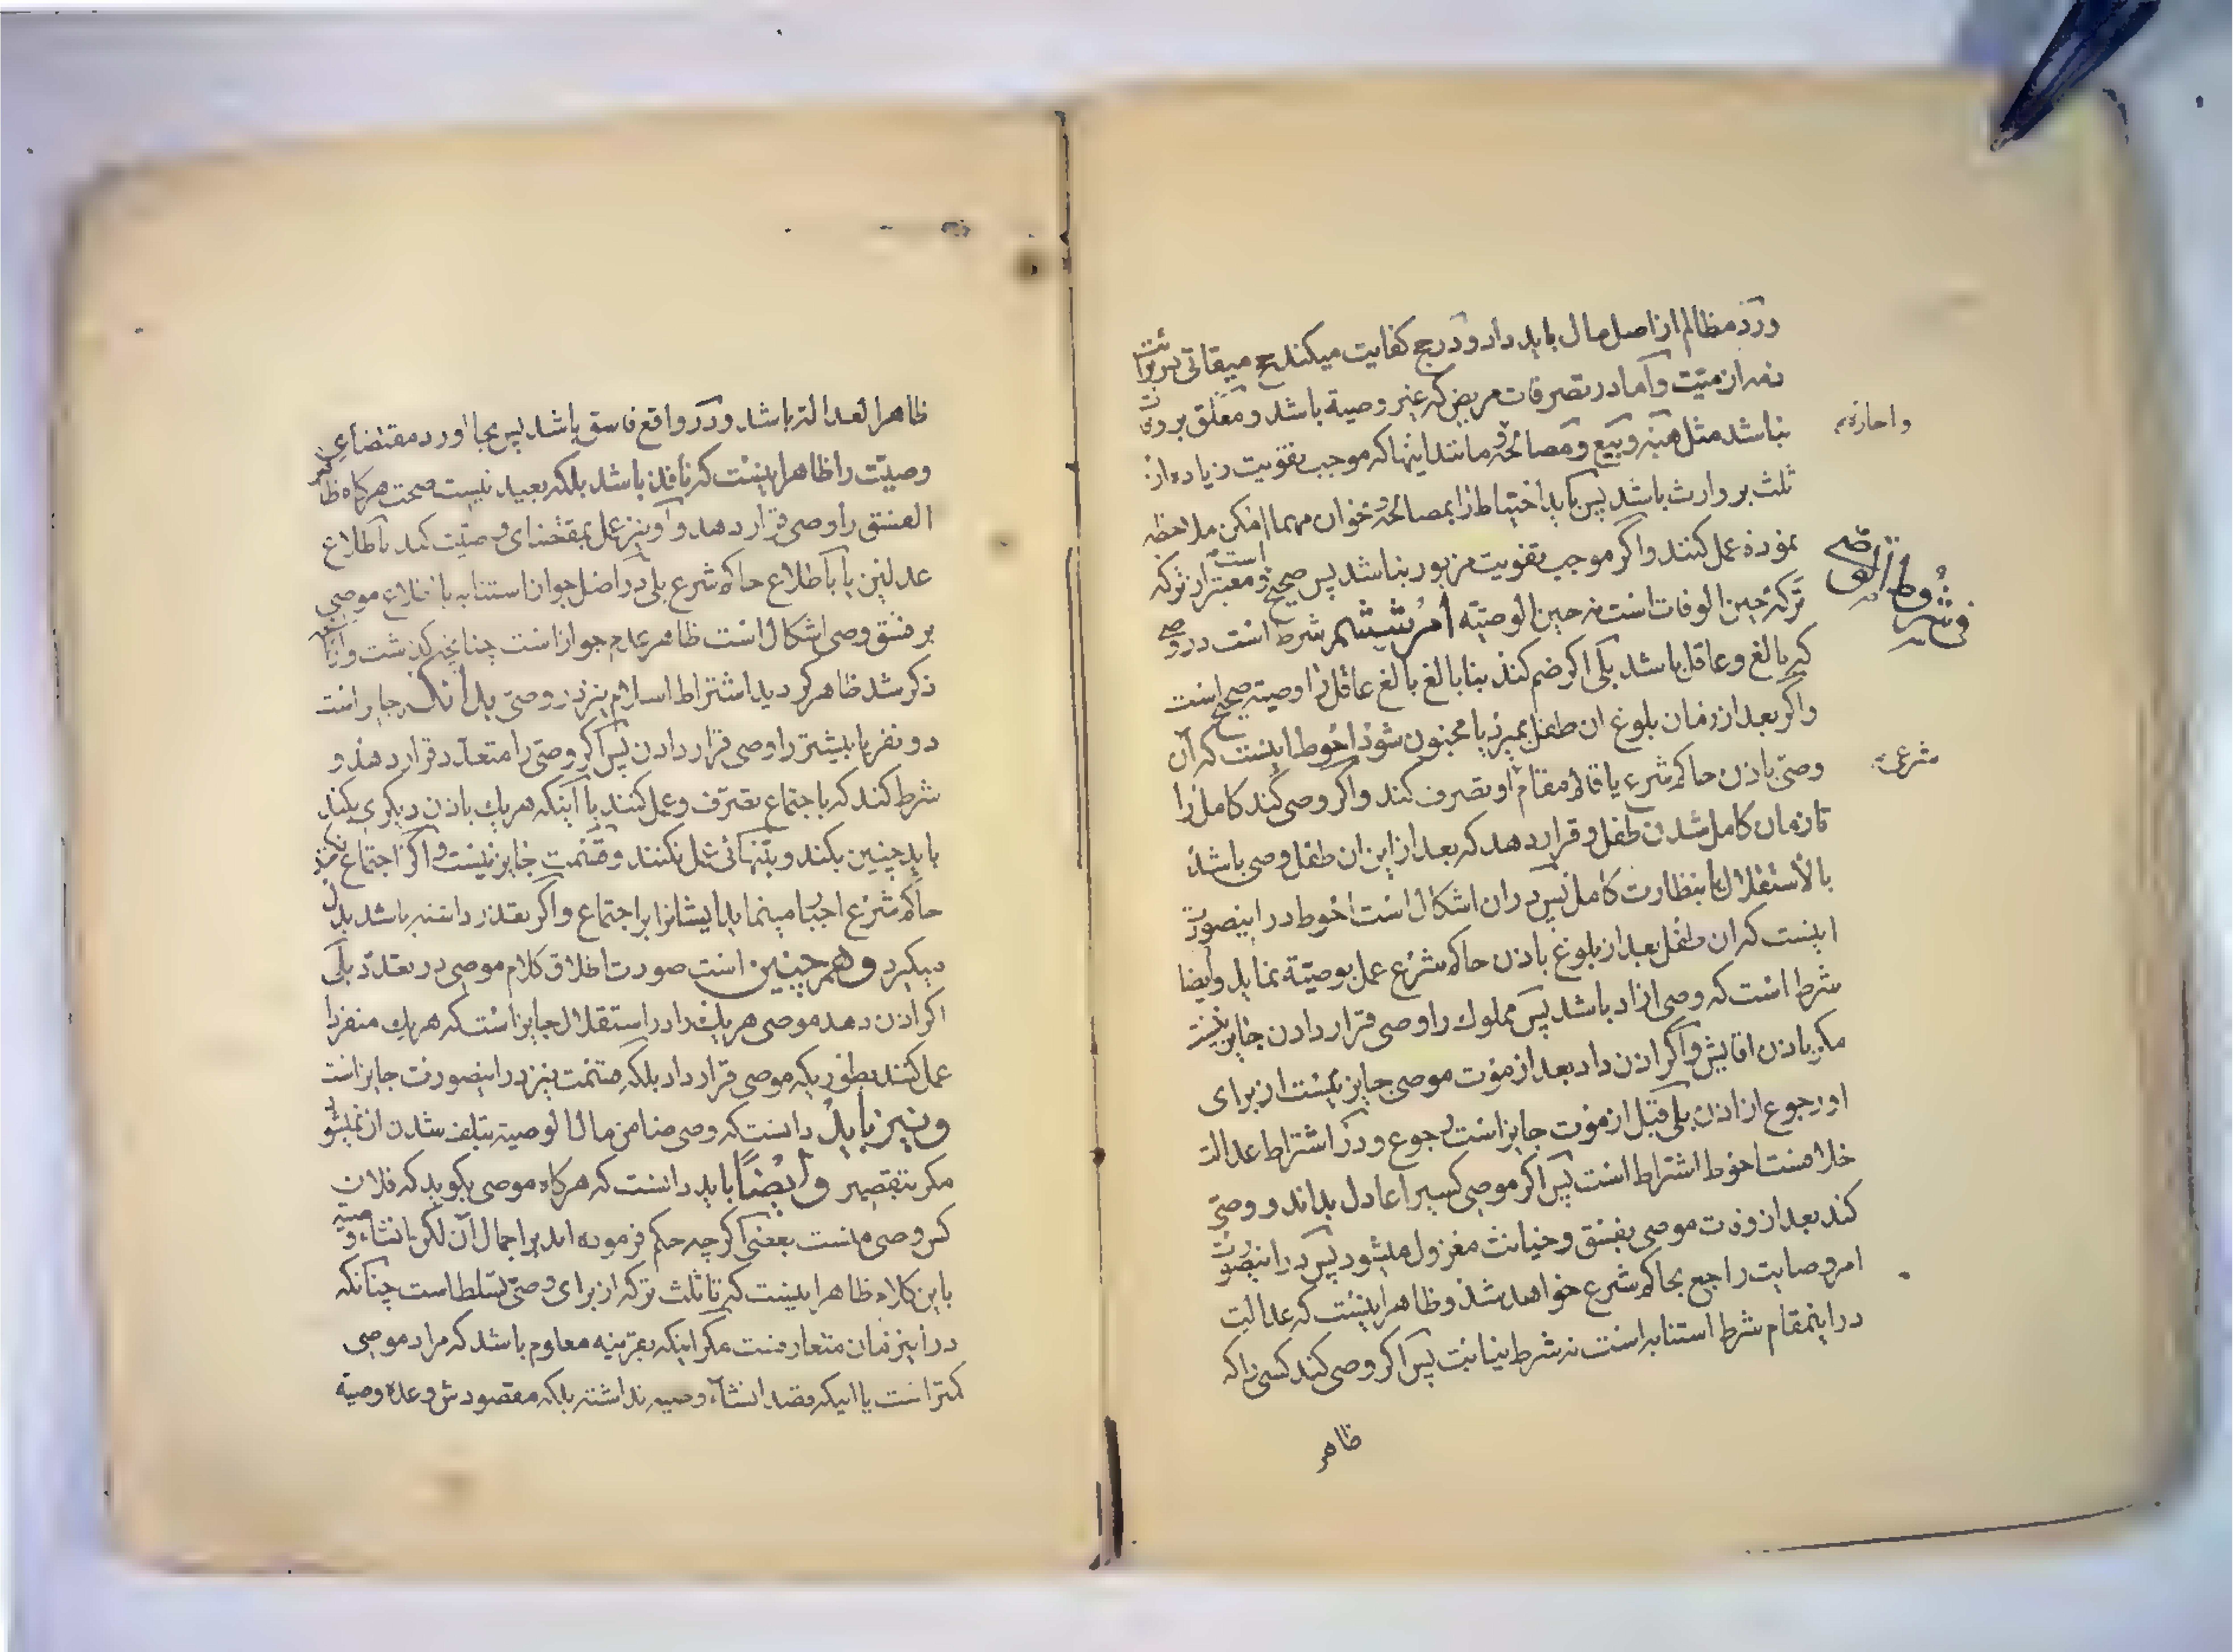 ورد مظالم از اصل مال باید داد و در حج کفایت میکند حج میقاتی برائت
ذمه ان میّت و اما در تصرفات مریض که غیر وصیة باشد و معلق بر موت
نباشد مثل هبه و بیع و مصالحه و مانند اینها که موجب تفویت زیاده از
واجاره
ثلث بر وارث باشد پس باید احتیاط را بمصالحه و نحو ان مهما امکن ملاحظه
نموده عمل کنند و اگر موجب تفویت مزبور نباشد پس صحیح است و معتبر از ترکه
ترکه حین الوفات است نه حین الوصیّه امر ششم شرط است در وصی
فی شروط الوصی
که بالغ و عاقل باشد بلی اگر ضم کند نابالغ ببالغ عاقل را وصیة صحیح است
و اگر بعد از زمان بلوغ ان طفل بمیرد یا مجنون شود احوط اینست که آن
وصی باذن حاکم شرع یا قائم مقام او تصرف کند و اگر وصی کند کامل را
شرعی
تا زمان کامل شدن طفل و قرار دهد که بعد از این ان طفل وصی باشد
بالاستقلال یا بنظارت کامل پس در ان اشکال است احوط در اینصورت
اینست که ان طفل بعد از بلوغ باذن حاکم شرع عمل بوصیّة نماید و ایضا
شرط است که وصی ازاد باشد پس مملوک را وصی قرار دادن جایز نیست
مگر باذن اقایش و اگر اذن داد بعد از موت موصی جایز نیست از برای
او رجوع از اذن بلی قبل از موت جایز است رجوع و در اشتراط عدالت
خلافست احوط اشتراط است پس اگر موصی کسیرا عادل بداند و وصی
کند بعد از فوت موصی بفسق و خیانت معزول میشود پس در اینصورت
امر وصایت راجع بحاکم شرع خواهد شد و ظاهر اینست که عدالت
در اینمقام شرط استنابه است نه شرط نیابت پس اگر وصی کند کسی را که
ظاهر
ظاهر العدالة باشد و در واقع فاسق باشد پس بجا اورد مقتضای
وصیّت را ظاهر اینست که نافذ باشد بلکه بعید نیست صحت هرگاه ظاهر
الفسق را وصی قرار دهد و او نیز عمل بمقتضای وصیّت کند باطلاع
عدلین یا باطلاع حاکم شرع بلی در اصل جواز استنابه با اطلاع موصی
بر فسق وصی اشکال است ظاهر عدم جواز است چنانچه گذشت و از آنچه
ذکر شد ظاهر گردید اشتراط اسلام نیز در وصی بدانکه جایز است
دو نفر یا بیشتر را وصی قرار دادن پس اگر وصی را متعدّد قرار دهد و
شرط کند که باجتماع تصرّف و عمل کنند یا آینکه هر یک باذن دیگری بکند
باید چنین بکند و بتنهائی عمل نکنند و قسمت جایز نیست و اگر اجتماع نکنند
حاکم شرع اجبار مینماید ایشانرا بر اجتماع و اگر تعذر داشته باشد بدل
میگیرد و همچنین است صورت اطلاق کلام موصی در تعدّد بلی
اگر اذن دهد موصی هر یک را در استقلال جایز است که هر یک منفردا
عمل کنند بطوریکه موصی قرار داد بلکه قسمت نیز در اینصورت جایز است
و نیز باید دانست که وصی ضامن مال الوصیه بتلف شدن ان نمیشود
مگر بتقصیر و ایضًا باید دانست که هرگاه موصی بگوید که فلان
کس وصی منست بعضی اگرچه حکم فرموده اند براجمال آن لکن انشاء وصیّة
باین کلام ظاهر اینست که تا ثلث ترکه از برای وصی تسلط است چنانکه
در اینزمان متعارفست مگر اینکه بقرینه معلوم باشد که مراد موصی
کمتر است یا اینکه قصد انشاء وصیه نداشته بلکه مقصودش وعدۀ وصیّه